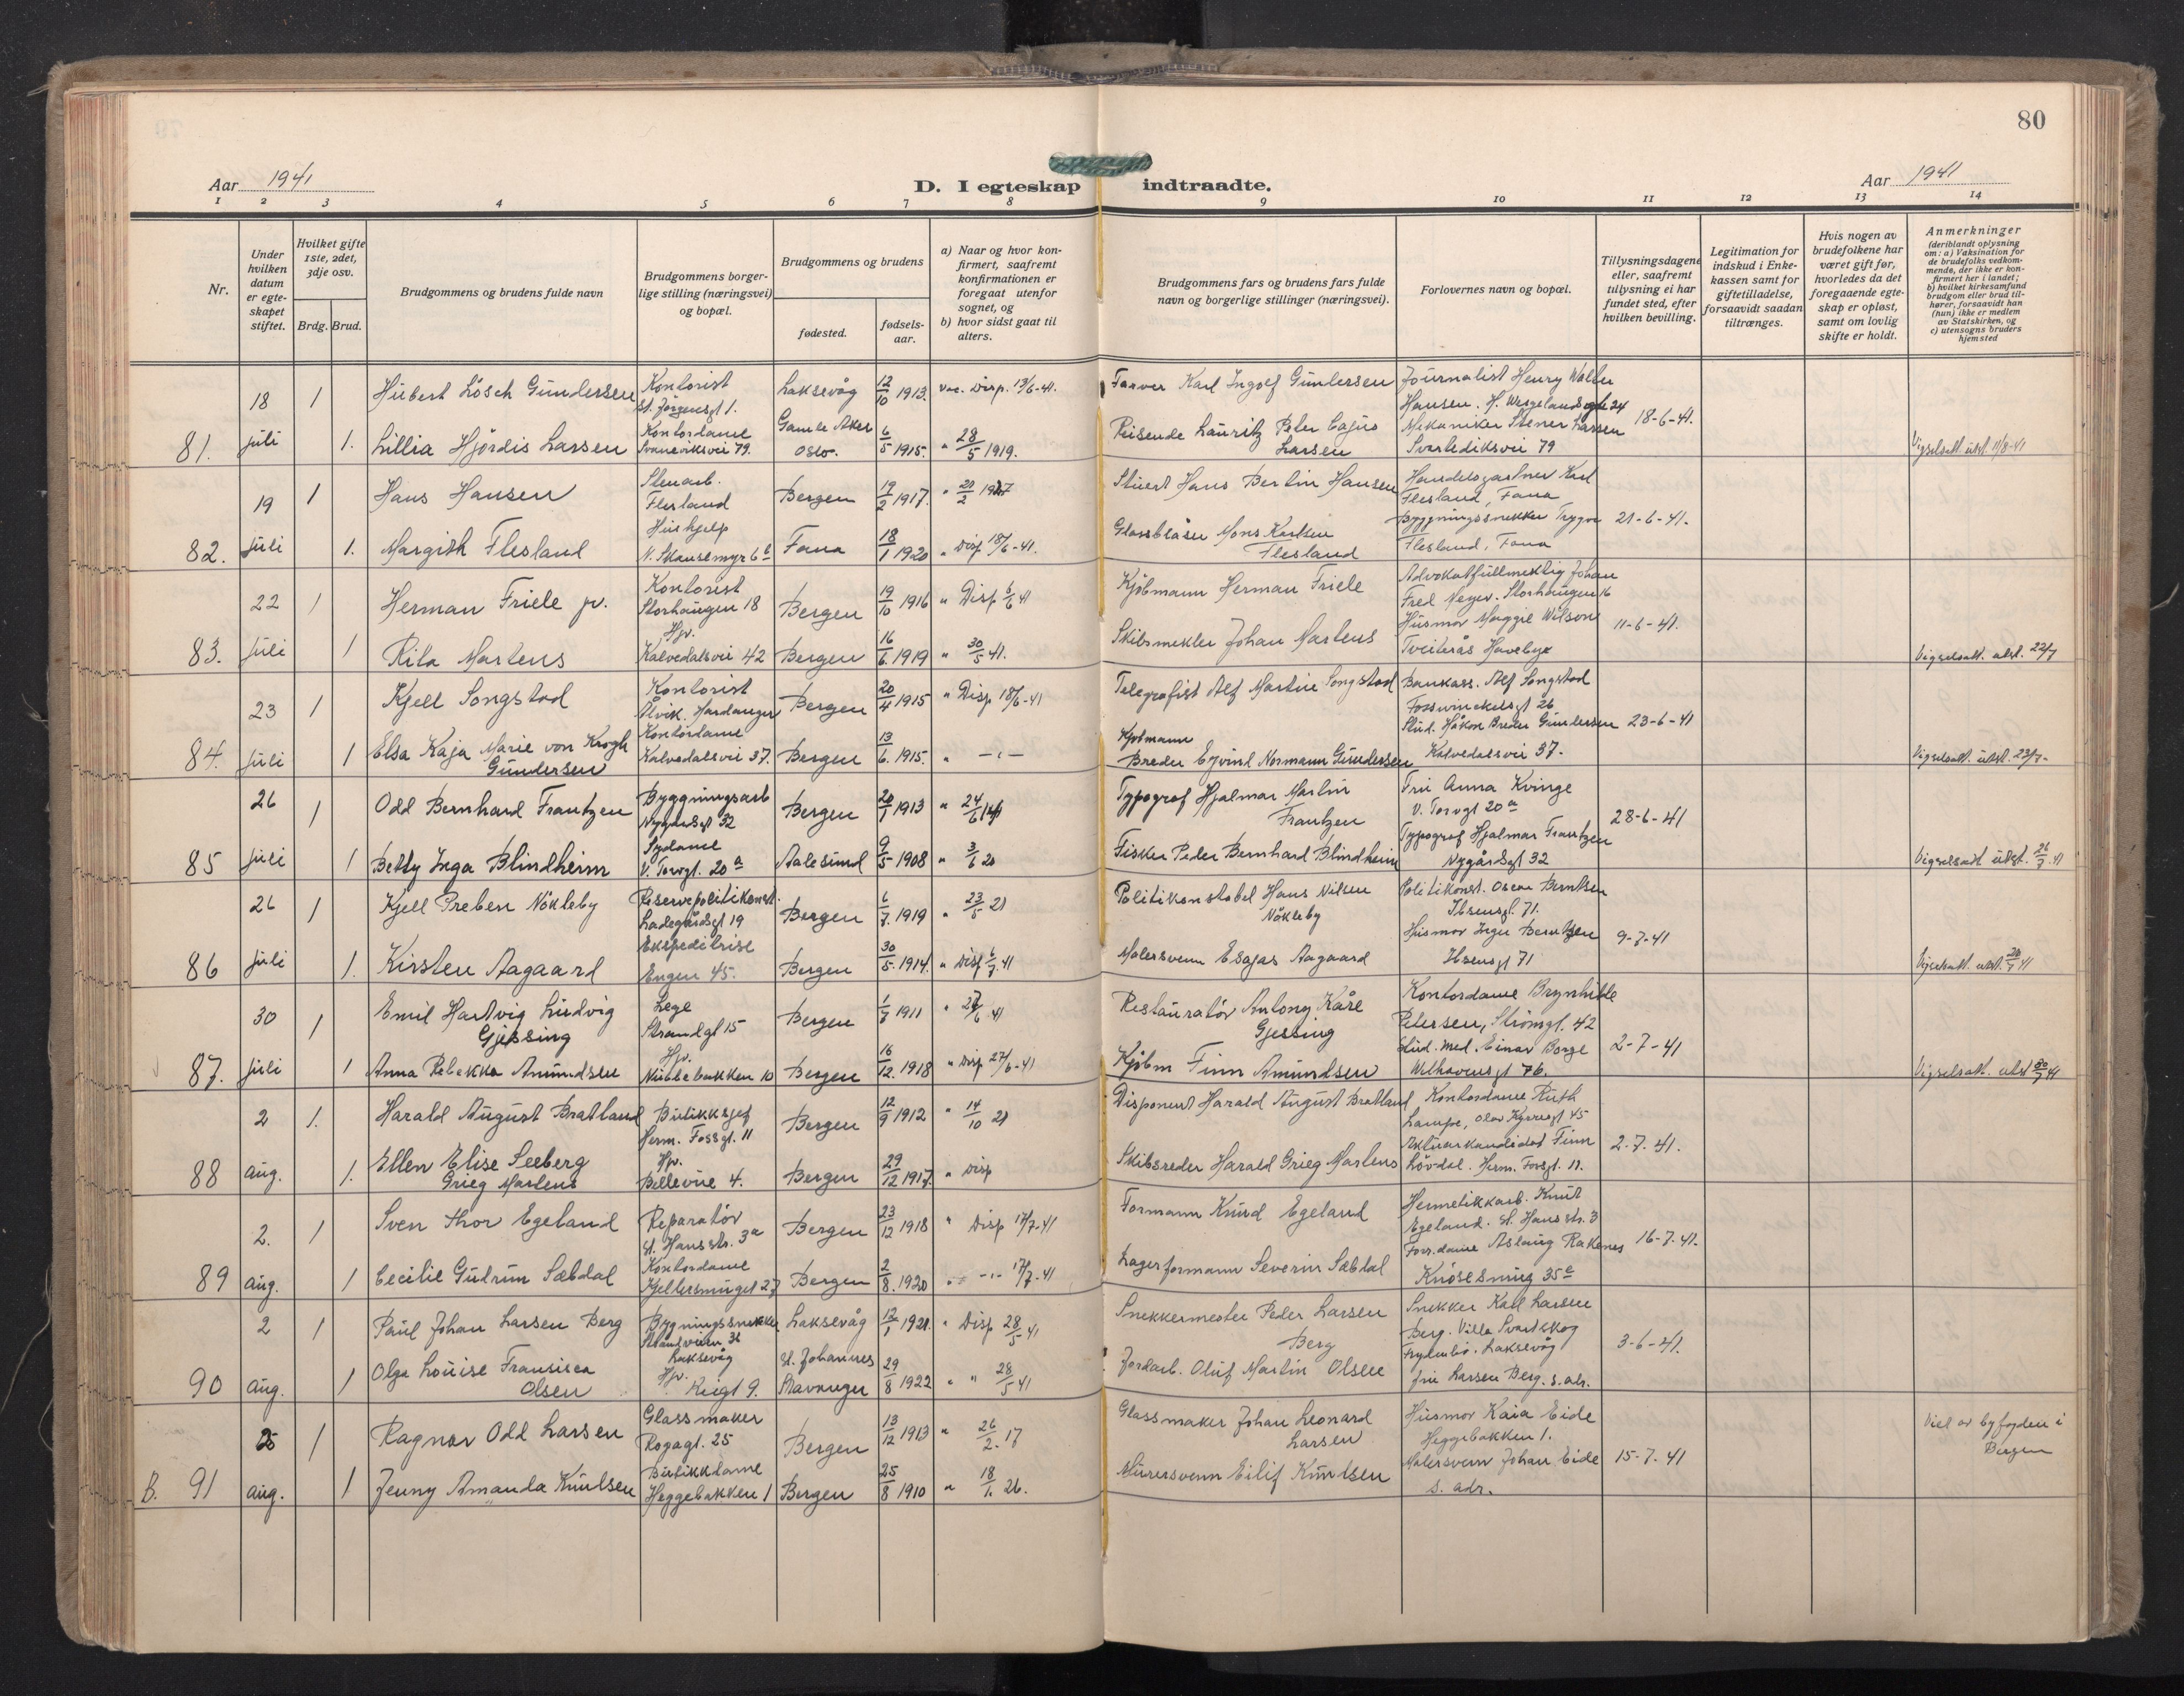 80
Aar 1941
D. I egteskap indtraadte.
Aar 1941
1 2 3 4 5 6 7 8 9 10 11 12 13 14
Nr.
Under hvilken datum er egteskapet stiftet.
Hvilket gifte 1ste, 2det, 3dje osv.
Brdg. Brud.
Brudgommens og brudens fulde navn
Brudgommens borgerlige stilling (næringsvei) og bopæl.
Brudgommens og brudens
fødested.
fødselsaar.
a) Naar og hvor konfirmert, saafremt konfirmationen er foregaat utenfor sognet, og
b) hvor sidst gaat til alters.
Brudgommens fars og brudens fars fulde navn og borgerlige stillinger (næringsvei).
Forlovernes navn og bopæl.
Tillysningsdagene eller, saafremt tillysning ei har fundet sted, efter hvilken bevilling.
Legitimation for indskud i Enkekassen samt for giftetilladelse, forsaavidt saadan tiltrænges.
Hvis nogen av brudefolkene har været gift før, hvorledes da det foregaaende egteskap er opløst, samt om lovlig skifte er holdt.
Anmerkninger
(deriblandt oplysning om: a) Vaksination for de brudefolks vedkommende, der ikke er konfirmert her i landet; b) hvilket kirkesamfund brudgom eller brud tilhører, forsaavidt han (hun) ikke er medlem av Statskirken, og c) utensogns bruders hjemsted
18 1 Hubert Lösch Gundersen Kontorist St. Jørgensgt 1. Laksevåg 12/10 1913. vac. Disp. 13/6-41. Farver Karl Ingolf Gundersen Journalist Henry Walter Hansen. H. Wergelandsgt 24
81. juli 1. Lillia Hjördis Larsen Kontordame Svaneviksvei 79. Gamle Aker Oslo. 6/5 1915. " 28/5 1919. Reisende Lauritz Peter Cajus Larsen Mekaniker Stener Larsen 79 18-6-41. Vigselsatt. utst. 11/8-41
19 1 Hans Hansen Stenarb. Flesland Bergen 19/2 1917. Stuert Hans Bertin Hansen Handelsgartner Karl Flesland, Fana
82. juli 1. Margith Flesland Hushjelp Fana 18/1 1920 " Disp 18/6-41. Glassblåser Mons Karlsen Flesland Byggningssnekker Trygve Flesland, Fana 21-6-41.
22 1 Herman Friele jr. Kontorist Storhaugen 18 Bergen 19/10 1916 " Disp 5/6 41 Kjöbmann Herman Friele Advokatfullmektig Johan Fred Meyer. Storhaugen 16
83. juli 1 Rita Martens Hjv. Kalvedalsvei 42 Bergen 16/6 1919 " 30/5 41. Skibsmekler Johan Martens Husmor Maggie Wilson Tveiterås Haveby 11-6-41. Vigselsatt. utst. 22/7
23 1 Kjell Songstad Kontorist Ålvik. Hardanger Bergen 20/4 1915 " Disp 18/6-41 Telegrafist Alf Martin Songstad Bankass. Alf Songstad Fosswinckelsgt 26
84. juli 1 Elsa Kaja Marie von Krogh Gundersen Kontordame Kalvedalsvei 37. Bergen 13/6. 1915. " -"- Kjøbmann Breder Eyvind Normann Gundersen Stud. Håkon Breder Gundersen Kalvedalsvei 37. 23-6-41 Vigselsatt. utst. 23/7-
26 1 Odd Bernhard Frantzen Byggningsarb Nygårdsgt 32 Bergen 20/1 1913 " Typograf Hjalmar Martin Frantzen Fru Anna Kvinge V. Torvgt 20a
85 juli 1 Betty Inga Blindheim Sydame V. Torvgt. 20a Aalesund 9/5 1908 " 3/6 20 Fisker Peder Bernhard Blindheim Typograf Hjalmar Frantzen Nygårdsgt 32 28-6-41 Vigselsatt utst. 26/7.41
26 1 Kjell Preben Nökleby Reservepolitikonst. Ladegårdsgt 19 Bergen 6/7. 1919 " 23/5 21 Politikonstabel Hans Nilsen Nökleby Politikonst. Oscar Berntsen Ibsensgt. 71.
86 juli 1. Kirsten Aagaard Ekspeditrise Engen 45. Bergen 30/5. 1914. " Disp 6/7. 41 Malersvenn Esajas Aagaard Husmor Inger Berntsen Ibsensgt 71 9-7-41 Vigselsatt. utst.
30 1 Emil Hartvig Ludvig Gjessing Lege Strandgt 15 Bergen 1911 " Restauratør Antony Kåre Gjessing Kontordame Brynhilde Petersen, Strömgt. 42
87. juli 1 Anna Rebekka Amundsen Hjv. Nubbebakken 10 Bergen 16/12. 1918 " Disp 27/6-41 Kjöbm Finn Amundsen Stud. med. Einar Borge Welhavensgt 76. 2-7-41 Vigselsatt. utst 30/7 41
2 1. Harald August Bratland Butikksjef Herm. Fossgt. 11 Bergen 12/9 1912 " 14/10 21 Disponent Harald August Bratland Kontordame Ruth Lampe, Olav Kyrresgt 45
88 aug. 1. Ellen Elise Seeberg Grieg Martens Hjv. Bellevue 4. Bergen 29/12 1917. " Disp Skibsreder Harald Grieg Martens Aktuarkandidat Finn Lövdal. Herm. Fossgt. 11. 2-7-41.
2. 1 Sven Thor Egeland Reparatör St. Hansstr. 3a Bergen 23/12 1918 " Disp 17/7-41 Formann Knud Egeland Hermetikkarb. Knut Egeland. St. Hansstr. 3
89 aug. 1 Cecilie Gudrun Sæbdal Kontordame Kjellersmuget 27 Bergen 2/8. 1920 " -"- 17/7-41 Lagerformann Severin Sæbdal Forr.dame Aslaug Raknes Knøsesmug 35a 16-7-41.
2 1 Paul Johan Larsen Berg Bygningssnekker Strandveien 36 Laksevåg Laksevåg 12/1 1921. " Disp 28/5 41 Snekkermester Peder Larsen Berg Snekker Karl Larsen Berg. Villa Svartskog Laksevåg
90 aug. 1 Olga Louise Fransisca Olsen Hjv. 9. St. Johannes Stavanger 29/8 1922 " " 28/5 41 Jordarb. Oluf Martin Olsen fru Larsen Berg. s. adr. 3-6-41.
25 1 Ragnar Odd Larsen Glassmaker Rogagt. 25 Bergen 13/12 1913 " 26/2. 17 Glassmaker Johan Leonard Larsen Husmor Kaia Eide Heggebakken 1. Viet av byfogden i Bergen
B. 91 aug. 1 Jenny Amanda Knutsen Butikkdame Heggebakken 1 Bergen 25/8 1910 " 18/1. 26. Murersvenn Eilif Knutsen Malersvenn Johan Eide s. adr. 15-7-41